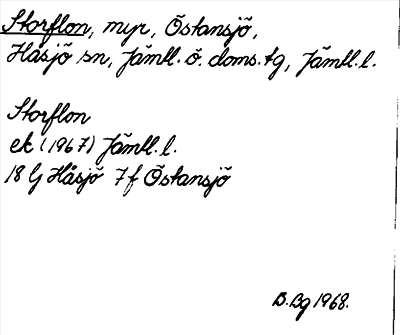 Storflon, myr, Östansjö,
Håsjö sn, Jämtl. ö. doms. tg, Jämtl. l.
Storflon
ek (1967) Jämtl. l.
18 G Håsjö 7f Östansjö
B. Bg 1968.